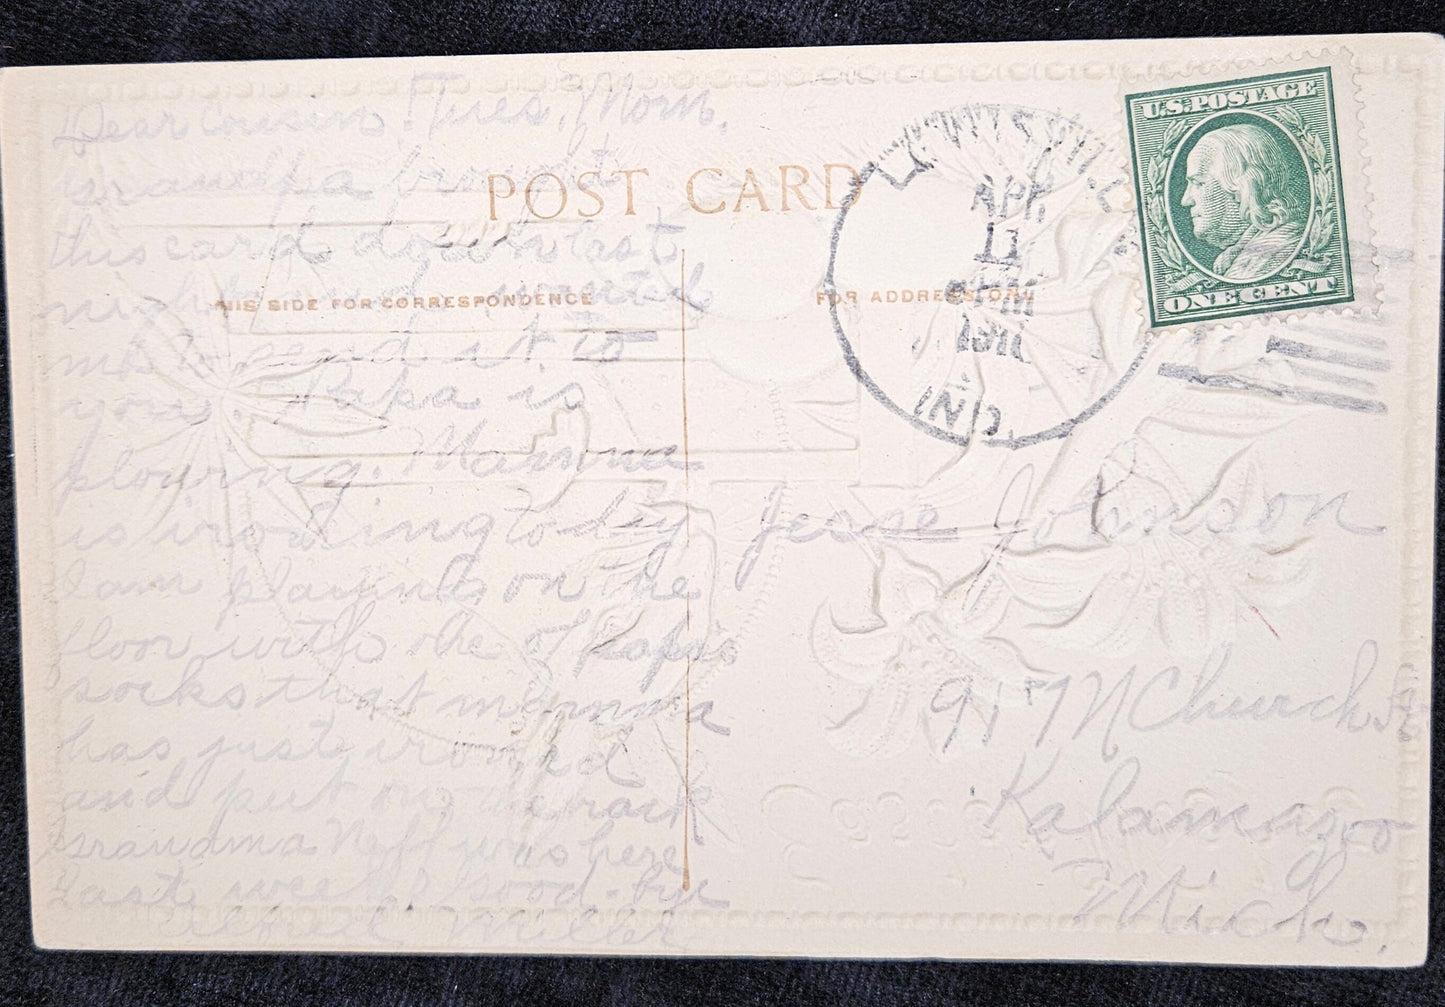 Dear Cousin. Tues, Morn.
Grandpa brought
this card down last
night and wanted
me to send it to
you. Papa is
plowing. Mamma
is ironing to day
I am playing on the
floor with one of papa's
socks that mamma
has just ironed
and put on the rack
Grandma Neff was here
last week good-bye
Miller
POST CARD
THIS SIDE FOR CORRESPONDENCE
FOR ADDRESS ONLY
APR
11
PM
1910
IND.
U.S. POSTAGE
ONE CENT
Jesse Johnson
917 N Church St
Kalamazoo
Mich.